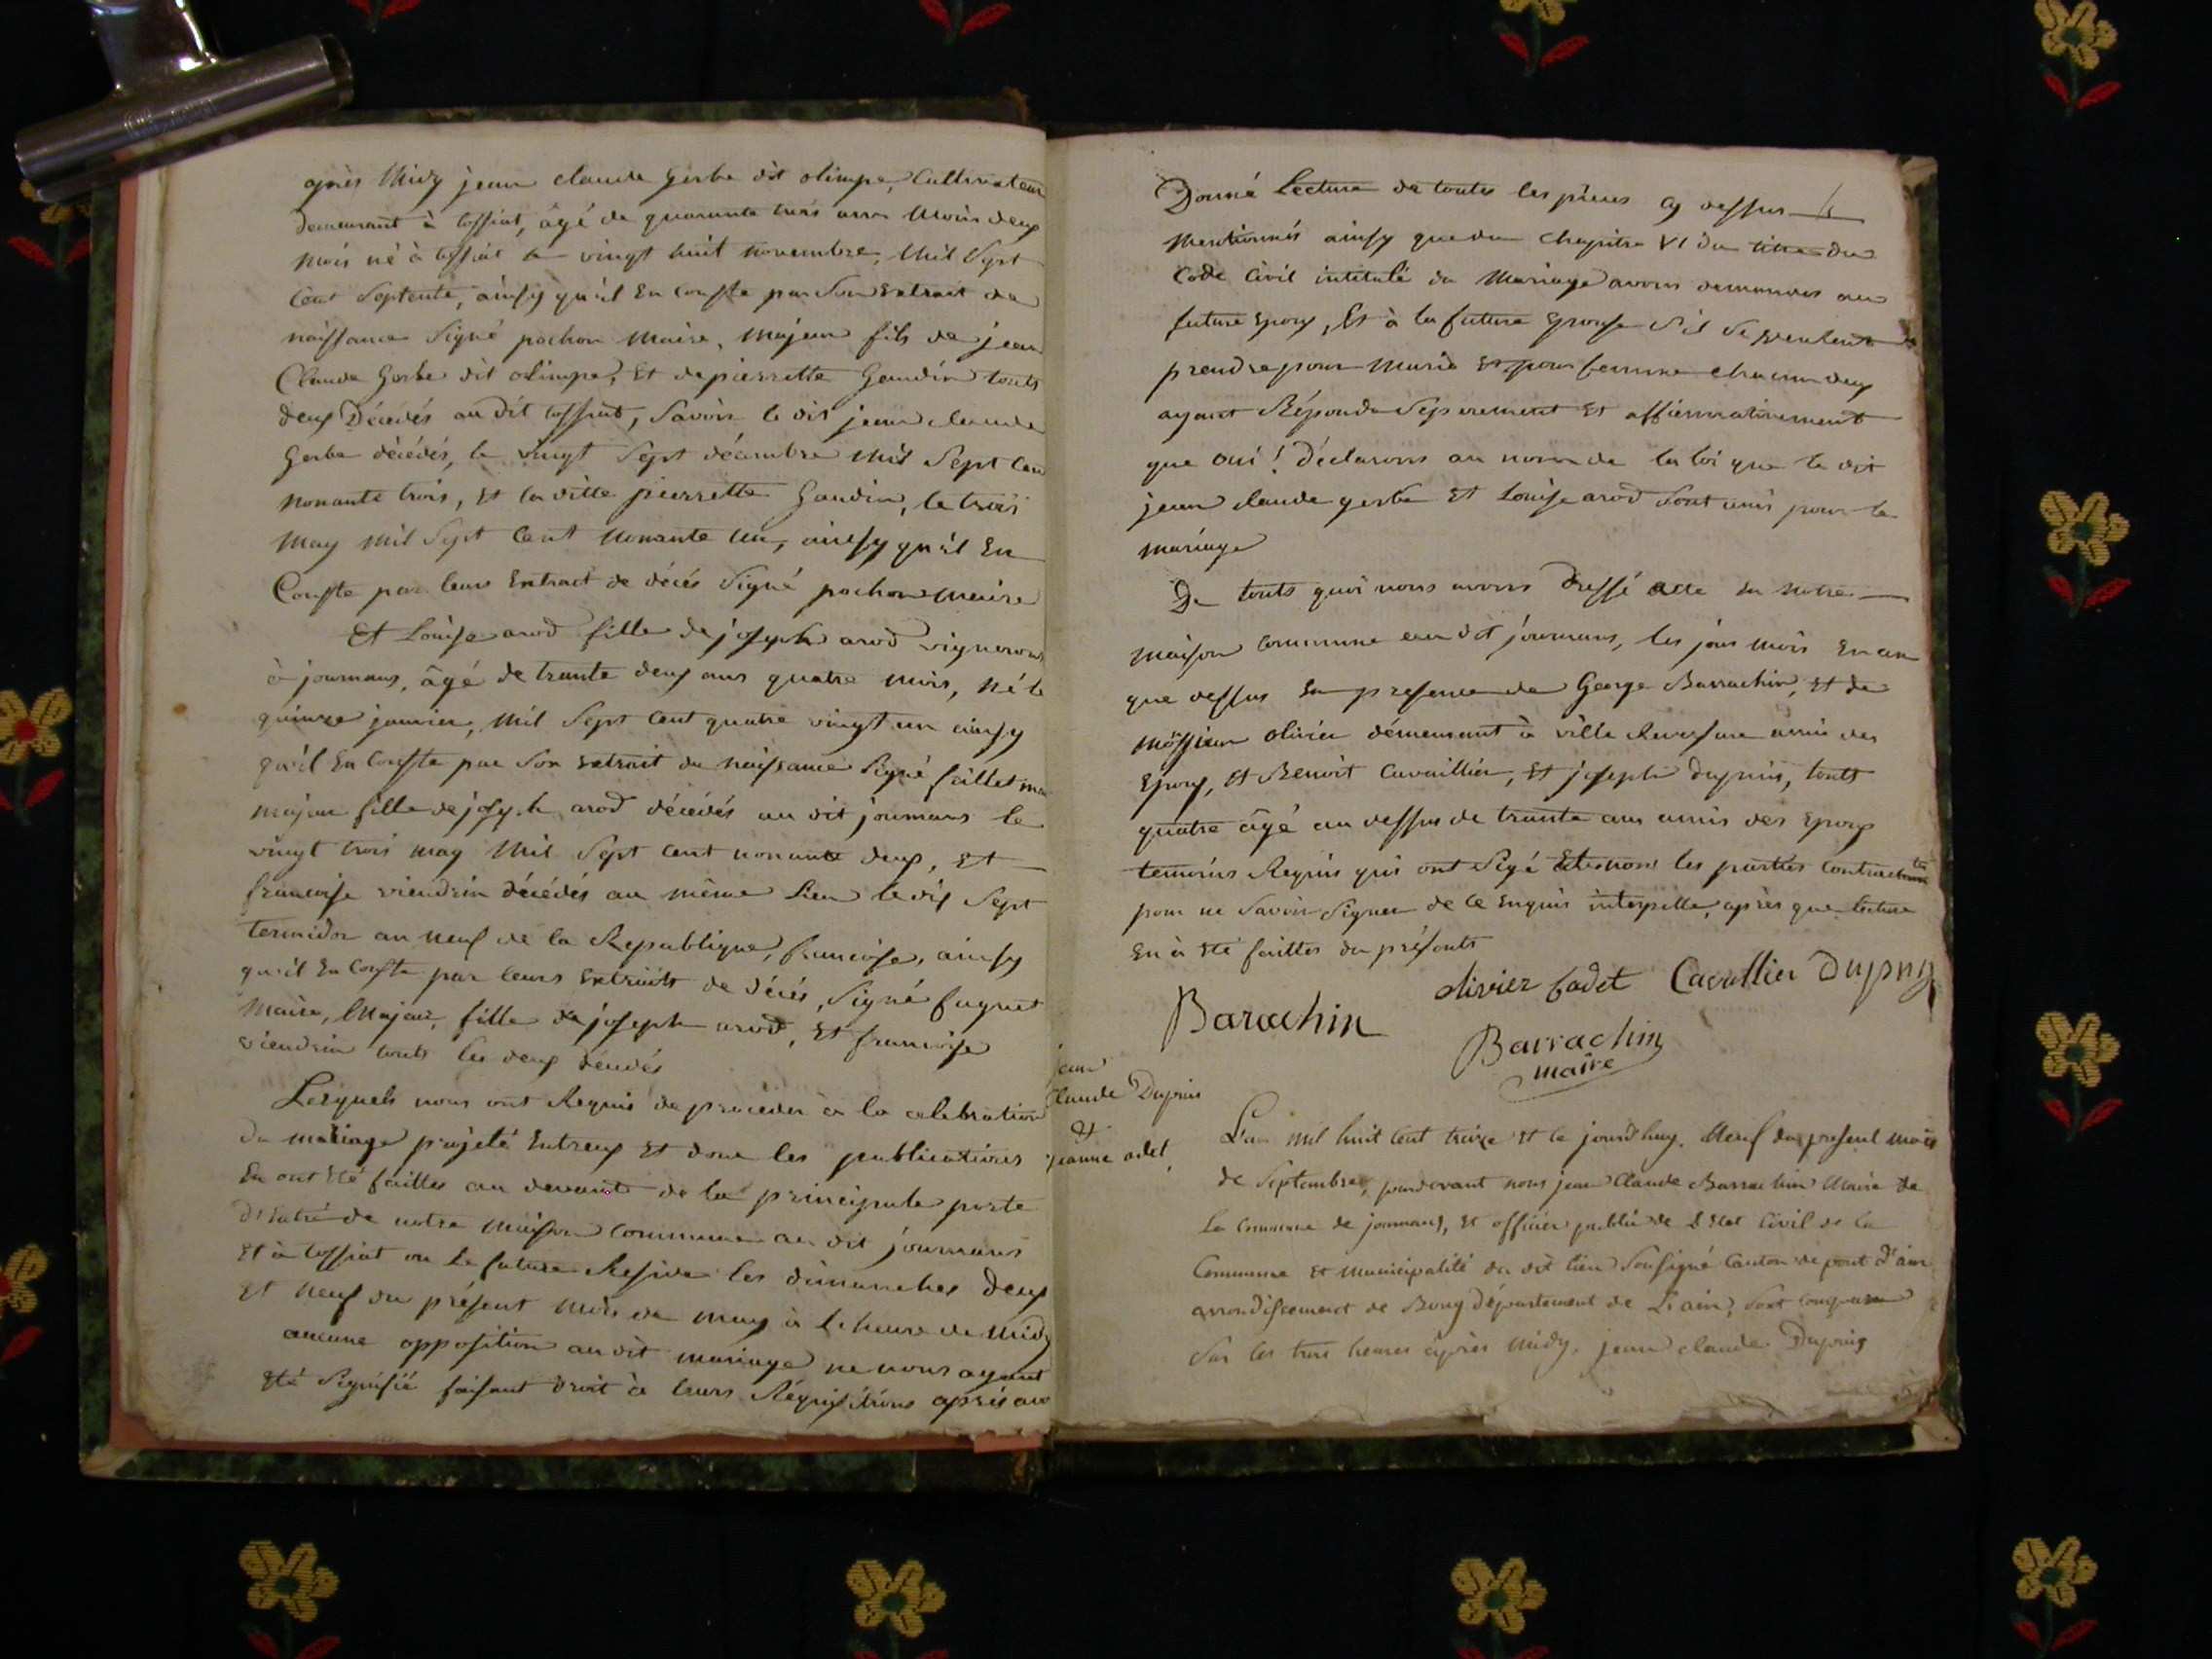 après Midy jean claude Gerbe dit olimpe, Cultivateur
demeurant à tossiat, âgé de quarante trois ans Moin deux
mois né à tossiat le vingt huit novembre, Mil Sept
Cent Septente, ainsy qu'il En Conste par Son Extrait de
naissance Signé pochon Maire, Majeur fils de jean
Claude Gerbe dit olimpe, Et de pierrette Gaudin touts
deux Décédés au dit tossiat, Savoir le dit jean claude
Gerbe décédés, le vingt Sept décembre Mil Sept Cen
nonante trois, Et la ditte pierrette Gaudin, le trois
May mil Sept Cent Nonante un, ainsy qu'il En
Conste par leurs Extrait de décés Signé pochon Maire
Et Louise arod fille de joseph arod vigneron
à journans, âgé de trante deux ans quatre mois, né le
quinze janvier, Mil Sept Cent quatre vingt un ainsy
qu'il En Conste par Son Extrait de naissance Signé faillet ma
majeur fille de joseph arod décédés au dit journans le
vingt trois may Mil Sept Cent nonante deux, Et
francoise viendrin décédés au même Lieu le dix Sept
termidor an neuf de la Republique, francoise, ainsy
qu'il En Conste par leurs Extraits de décés, Signé
Maire, Majeur, fille de joseph arod, Et francoise
viendrin touts les deux décédés
Lesquels nous ont Requis de procéder à la celebration
du mariage projeté Entreux Et dont les publications
En ont Eté faittes au devant de la principale porte
d'Entré de notre Maison Commune au dit journans
Et à tossiat ou Le future Reside les dimanches deux
Et neuf du présent Mois de May à L heure de Midy
aucune opposition au dit mariage ne nous ayant
Eté Signifié faisant droit à leurs Réquisitions après av
Donné Lecture de toutes les pièces Cy dessus
Mentionnés ainsy que du Chapitre VI du titre du
Code Civil intitulé du Mariage avons demandés au
future Epoux, Et à la future Epouse S'il Se veulent
prendre pour Marié Et pour femme chacun deux
ayant Répondu Séparement Et affirmativement
que Oui ! Déclarons au nom de la loi que le dit
jean claude gerbe Et Louise arod Sont unis pour le
mariage
De touts quoi nous avons Dressé acte En Notre
Maison Commune au dit journans, les jour mois En an
que dessus En présence de George Barrachin, Et de
Monsieur olivier démeurant à ville Reversure amis des
Epoux, Et Benoit Cavaillier, Et joseph dupuis, touts
quatre âgé au dessus de trante ans amis des Epoux
temoins Requis qui ont Signé Et non les parties Contractantes
pour ne Savoir Signer de Ce Enquis interpellé, après que lecture
En à Eté faittes du présents
olivier Cadet Cavallier Dupuy
Barachin
Barrachin
maire
jean
Claude Dupuis
Et
jeanne odet
L'an mil huit Cent treize Et le jourd'huy Neuf du present mois
de Septembre, pardevant nous jean Claude Barrachin Maire de
La Commune de journans, Et officier public de L'Etat Civil de la
Commune Et municipalité du dit lieu Sousigné Canton de pont d'ain
arrondissement de Bourg Département de L'ain, Sont comparu
Sur les trois heures après midy. jean claude Dupuis